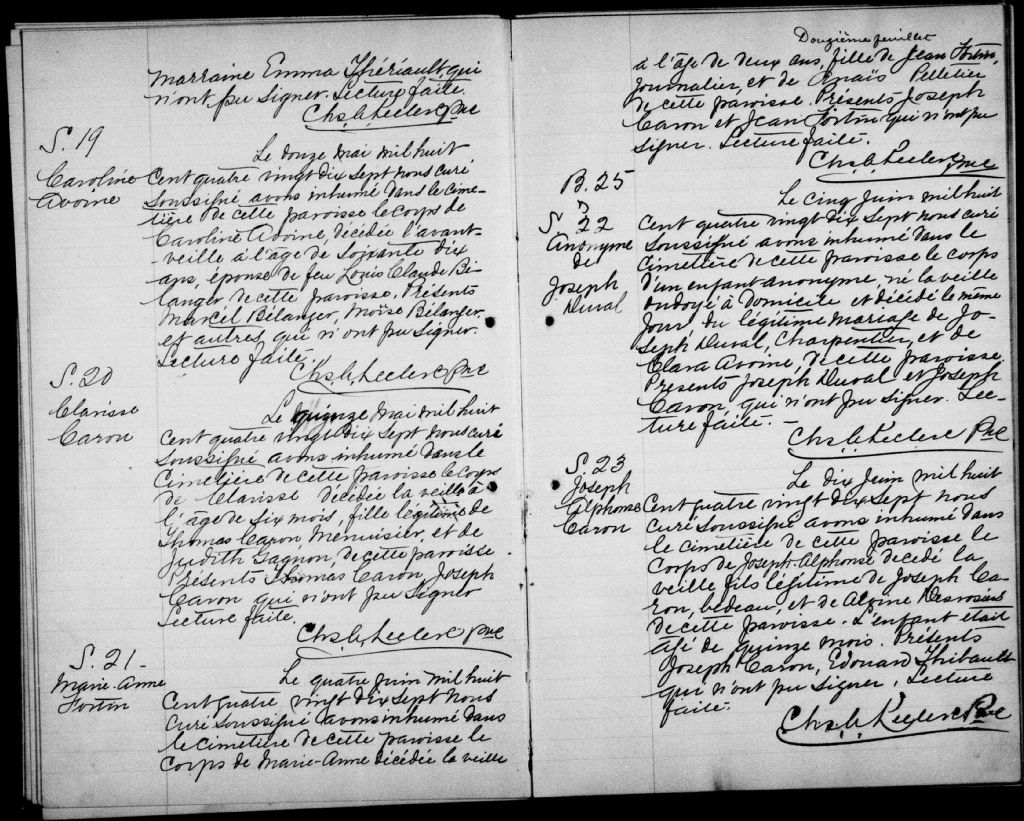 marraine Emma Thériault qui
n'ont pu signer. Lecture faite.
Chs. A. Leclerc Ptre
S. 19
Caroline
Avoine
Le douze mai mil huit
Cent quatre vingt dix sept nous curé
Soussigné avons inhumé dans le cime-
tière de cette paroisse le corps de
Caroline Avoine, décédée l'avant-
-veille à l'âge de soixante dix
ans, épouse de feu Louis Claude Bé-
langer de cette paroisse. Présents
Marcel Bélanger, Moïse Bélanger,
et autres qui n'ont pu signer.
Lecture faite.
Chs. A. Leclerc Ptre
S. 20
Clarisse
Caron
Le quinze mai mil huit
Cent quatre vingt dix sept nous curé
Soussigné avons inhumé dans le
Cimetière de cette paroisse le corps
de Clarisse décédée la veille à
l'âge de six mois, fille légitime de
Thomas Caron Menuisier, et de
Judith Gagnon, de cette paroisse.
Présents Thomas Caron, Joseph
Caron qui n'ont pu signer
Lecture faite.
Chs. A. Leclerc Ptre
S. 21-
Marie-Anne
Fortin
Le quatre Juin mil huit
Cent quatre vingt dix sept nous
Curé soussigné avons inhumé dans
le cimetière de cette paroisse le
Corps de Marie-Anne décédée la veille
Douzième feuillet
à l'âge de deux ans, fille de Jean Fortin,
Journalier, et de Pelletier
de cette paroisse. Présents Joseph
Caron et Jean Fortin qui n'ont pu
signer. Lecture faite.
Chs. A. Leclerc Ptre
B. 25
S 22
Anonyme
de
Joseph
Duval
Le Cinq Juin mil huit
Cent quatre vingt dix sept nous curé
Soussigné avons inhumé dans le
Cimetière de cette paroisse le corps
d'un enfant anonyme, né la veille
ondoyé à domicile et décédé le même
Jour, du légitime mariage de Jo-
seph Duval, Charpentier, et de
Clara Avoine, de cette paroisse.
Présents Joseph Duval et Joseph
Caron, qui n'ont pu signer. Lec-
ture faite. -
Chs. A. Leclerc Ptre
S. 23
Joseph
Alphonse
Caron
Le dix Juin mil huit
Cent quatre vingt dix sept nous
Curé soussigné avons inhumé dans
le cimetière de cette paroisse le
Corps de Joseph-Alphonse décédé la
veille fils légitime de Joseph Ca-
ron, bedeau, et de Alvine Desrosiers
de cette paroisse. L'enfant était
âgé de quinze mois. Présents
Joseph Caron, Edouard Thibault
qui n'ont pu signer, Lecture
faite.
Chs. A. Leclerc Ptre